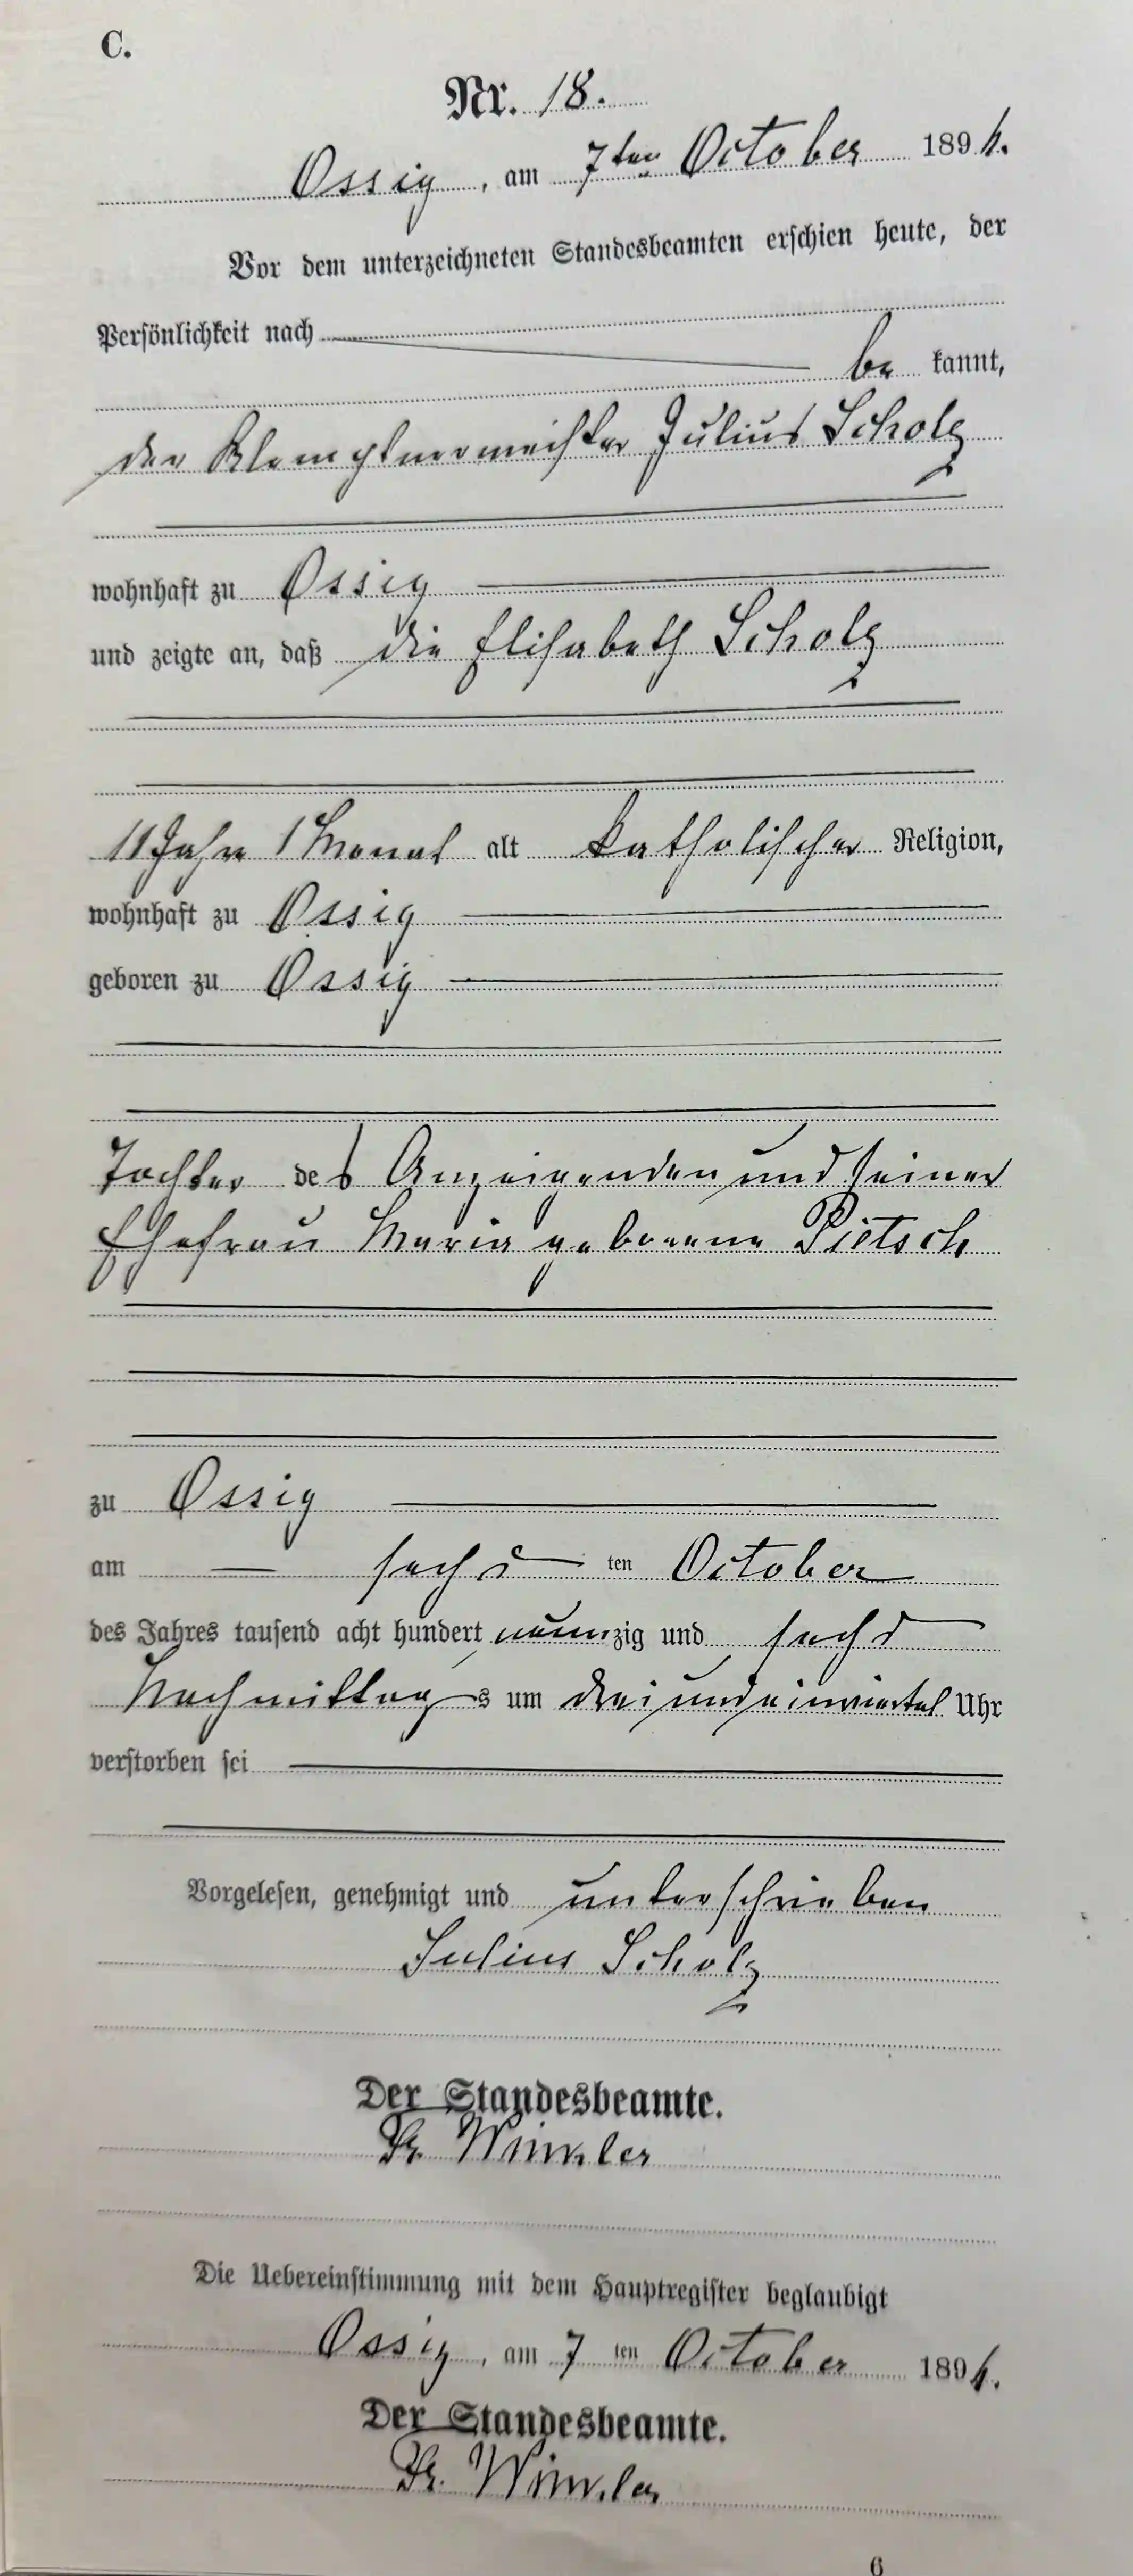 C.
Nr. 18.
Ossig, am 7ten October 1896.
Vor dem unterzeichneten Standesbeamten erschien heute, der
Persönlichkeit nach
be kannt,
der Klemptnermeister Julius Scholz
wohnhaft zu Ossig
und zeigte an, daß die Elisabeth Scholz
11 Jahre 1 Monat alt katholischer Religion,
wohnhaft zu Ossig
geboren zu Ossig
Tochter des Anzeigenden und seiner
Ehefrau Maria geborene Pietsch
zu Ossig
am sechs ten October
des Jahres tausend acht hundert neunzig und sechs
Nachmittag s um drei und einviertel Uhr
verstorben sei
Vorgelesen, genehmigt und unterschrieben
Julius Scholz
Der Standesbeamte.
Fr. Winkler
Die Uebereinstimmung mit dem Hauptregister beglaubigt
Ossig, am 7 ten October 1896.
Der Standesbeamte.
Fr. Winkler
6